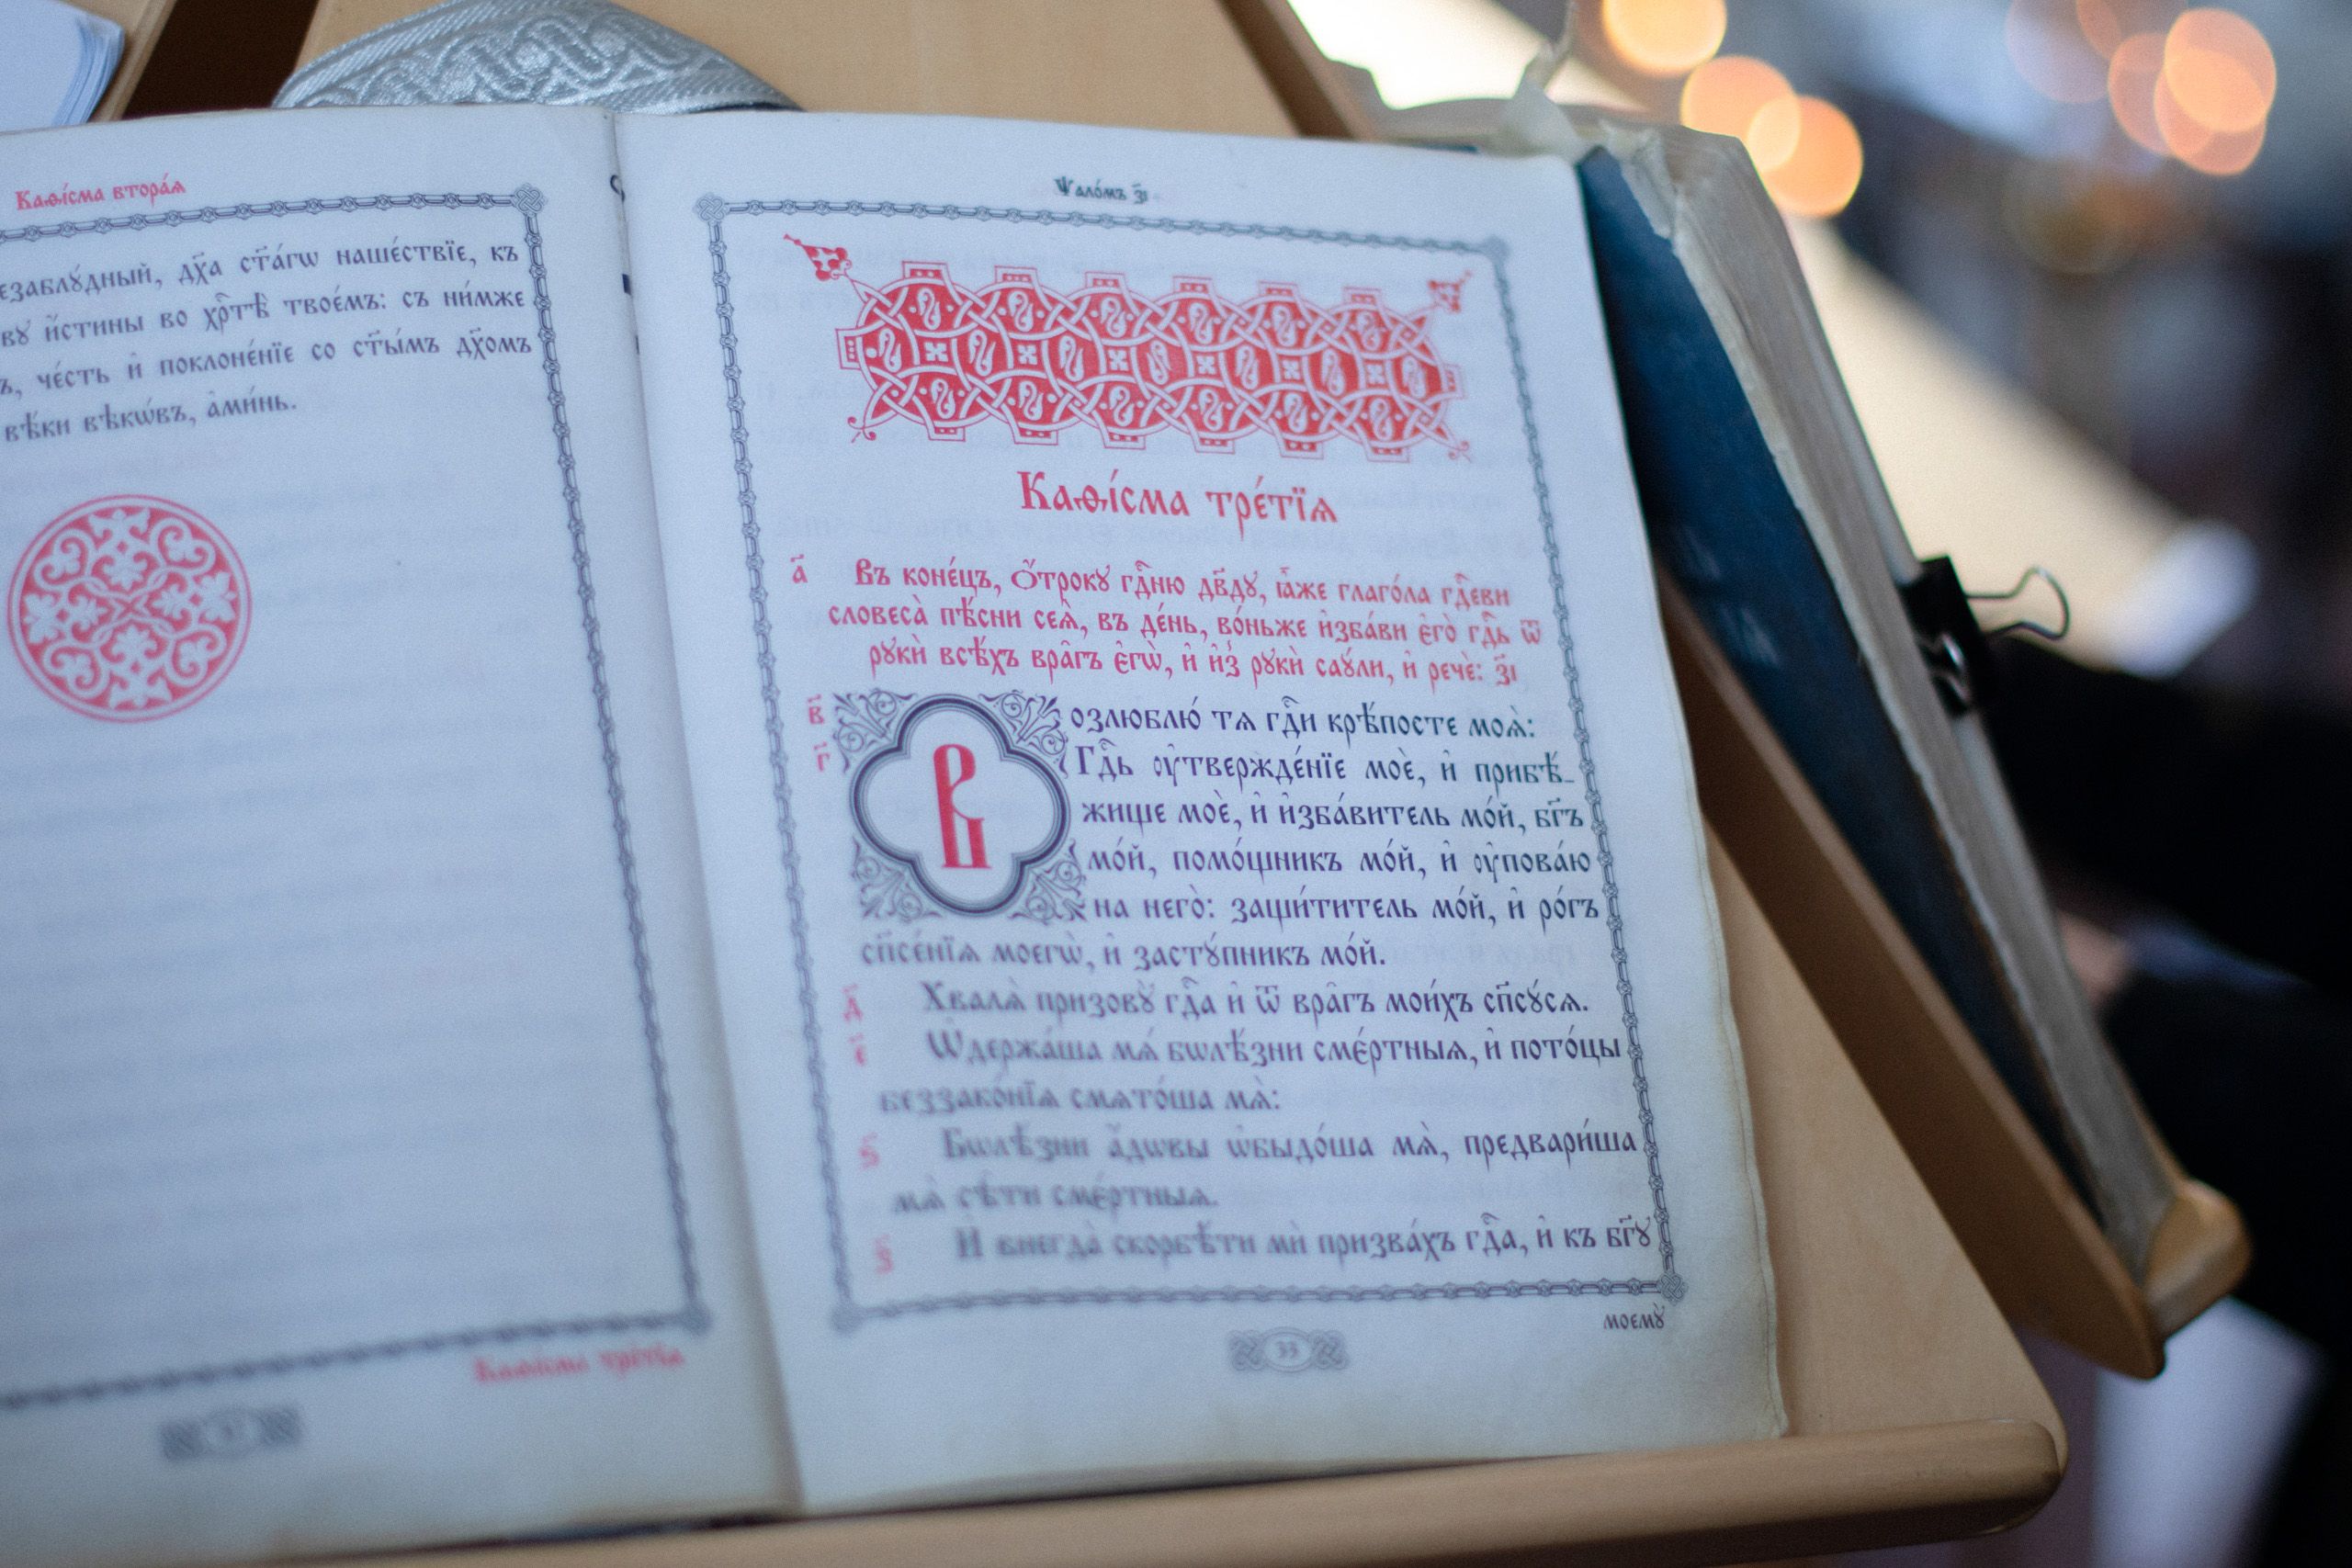 Каѳі́сма втора́ѧ
езаблꙋ́дный, дх҃а ст҃а́гѡ наше́ствїе, къ
вꙋ и҆́стины во хрⷭ҇тѣ̀ твое́мъ: съ ни́мже
ъ, че́сть и҆ поклоне́нїе со ст҃ы́мъ дх҃омъ
вѣ́ки вѣкѡ́въ, а҆ми́нь.
Каѳі́сма тре́тїѧ
Ѱало́мъ з҃і
Каѳі́сма тре́тїѧ
а҃ Въ коне́цъ, ѻ҆́трокꙋ гдⷭ҇ню дв҃дꙋ, ꙗ҆̀же глаго́ла гдⷭ҇еви
словеса̀ пѣ́сни сеѧ̀, въ де́нь, во́ньже и҆зба́ви є҆го̀ гдⷭ҇ь ѿ
рꙋкѝ всѣ́хъ вра̑гъ є҆гѡ̀, и҆ и҆з̾ рꙋкѝ саꙋ́ли, и҆ речѐ: з҃і
в҃ Возлюблю́ тѧ гдⷭ҇и крѣ́посте моѧ̀:
г҃ Гдⷭ҇ь ᲂу҆твержде́нїе моѐ, и҆ прибѣ́-
жище моѐ, и҆ и҆зба́витель мо́й, бг҃ъ
мо́й, помо́щникъ мо́й, и҆ ᲂу҆пова́ю
на него̀: защи́титель мо́й, и҆ ро́гъ
сп҃се́нїѧ моегѡ̀, и҆ застꙋ́пникъ мо́й.
д҃ Хвалѧ̀ призовꙋ̀ гдⷭ҇а и҆ ѿ вра̑гъ мои́хъ сп҃сꙋ́сѧ.
є҃ Ѡ҆держа́ша мѧ́ бѡлѣ́зни сме́ртныѧ, и҆ пото́цы
беззако́нїѧ смѧто́ша мѧ̀:
ѕ҃ Бѡлѣ́зни а҆́дѡвы ѡ҆быдо́ша мѧ̀, предвари́ша
мѧ̀ сѣ́ти смє́ртныѧ.
з҃ И҆ внегда̀ скорбѣ́ти мѝ призва́хъ гдⷭ҇а, и҆ къ бг҃ꙋ
моемꙋ̀
33